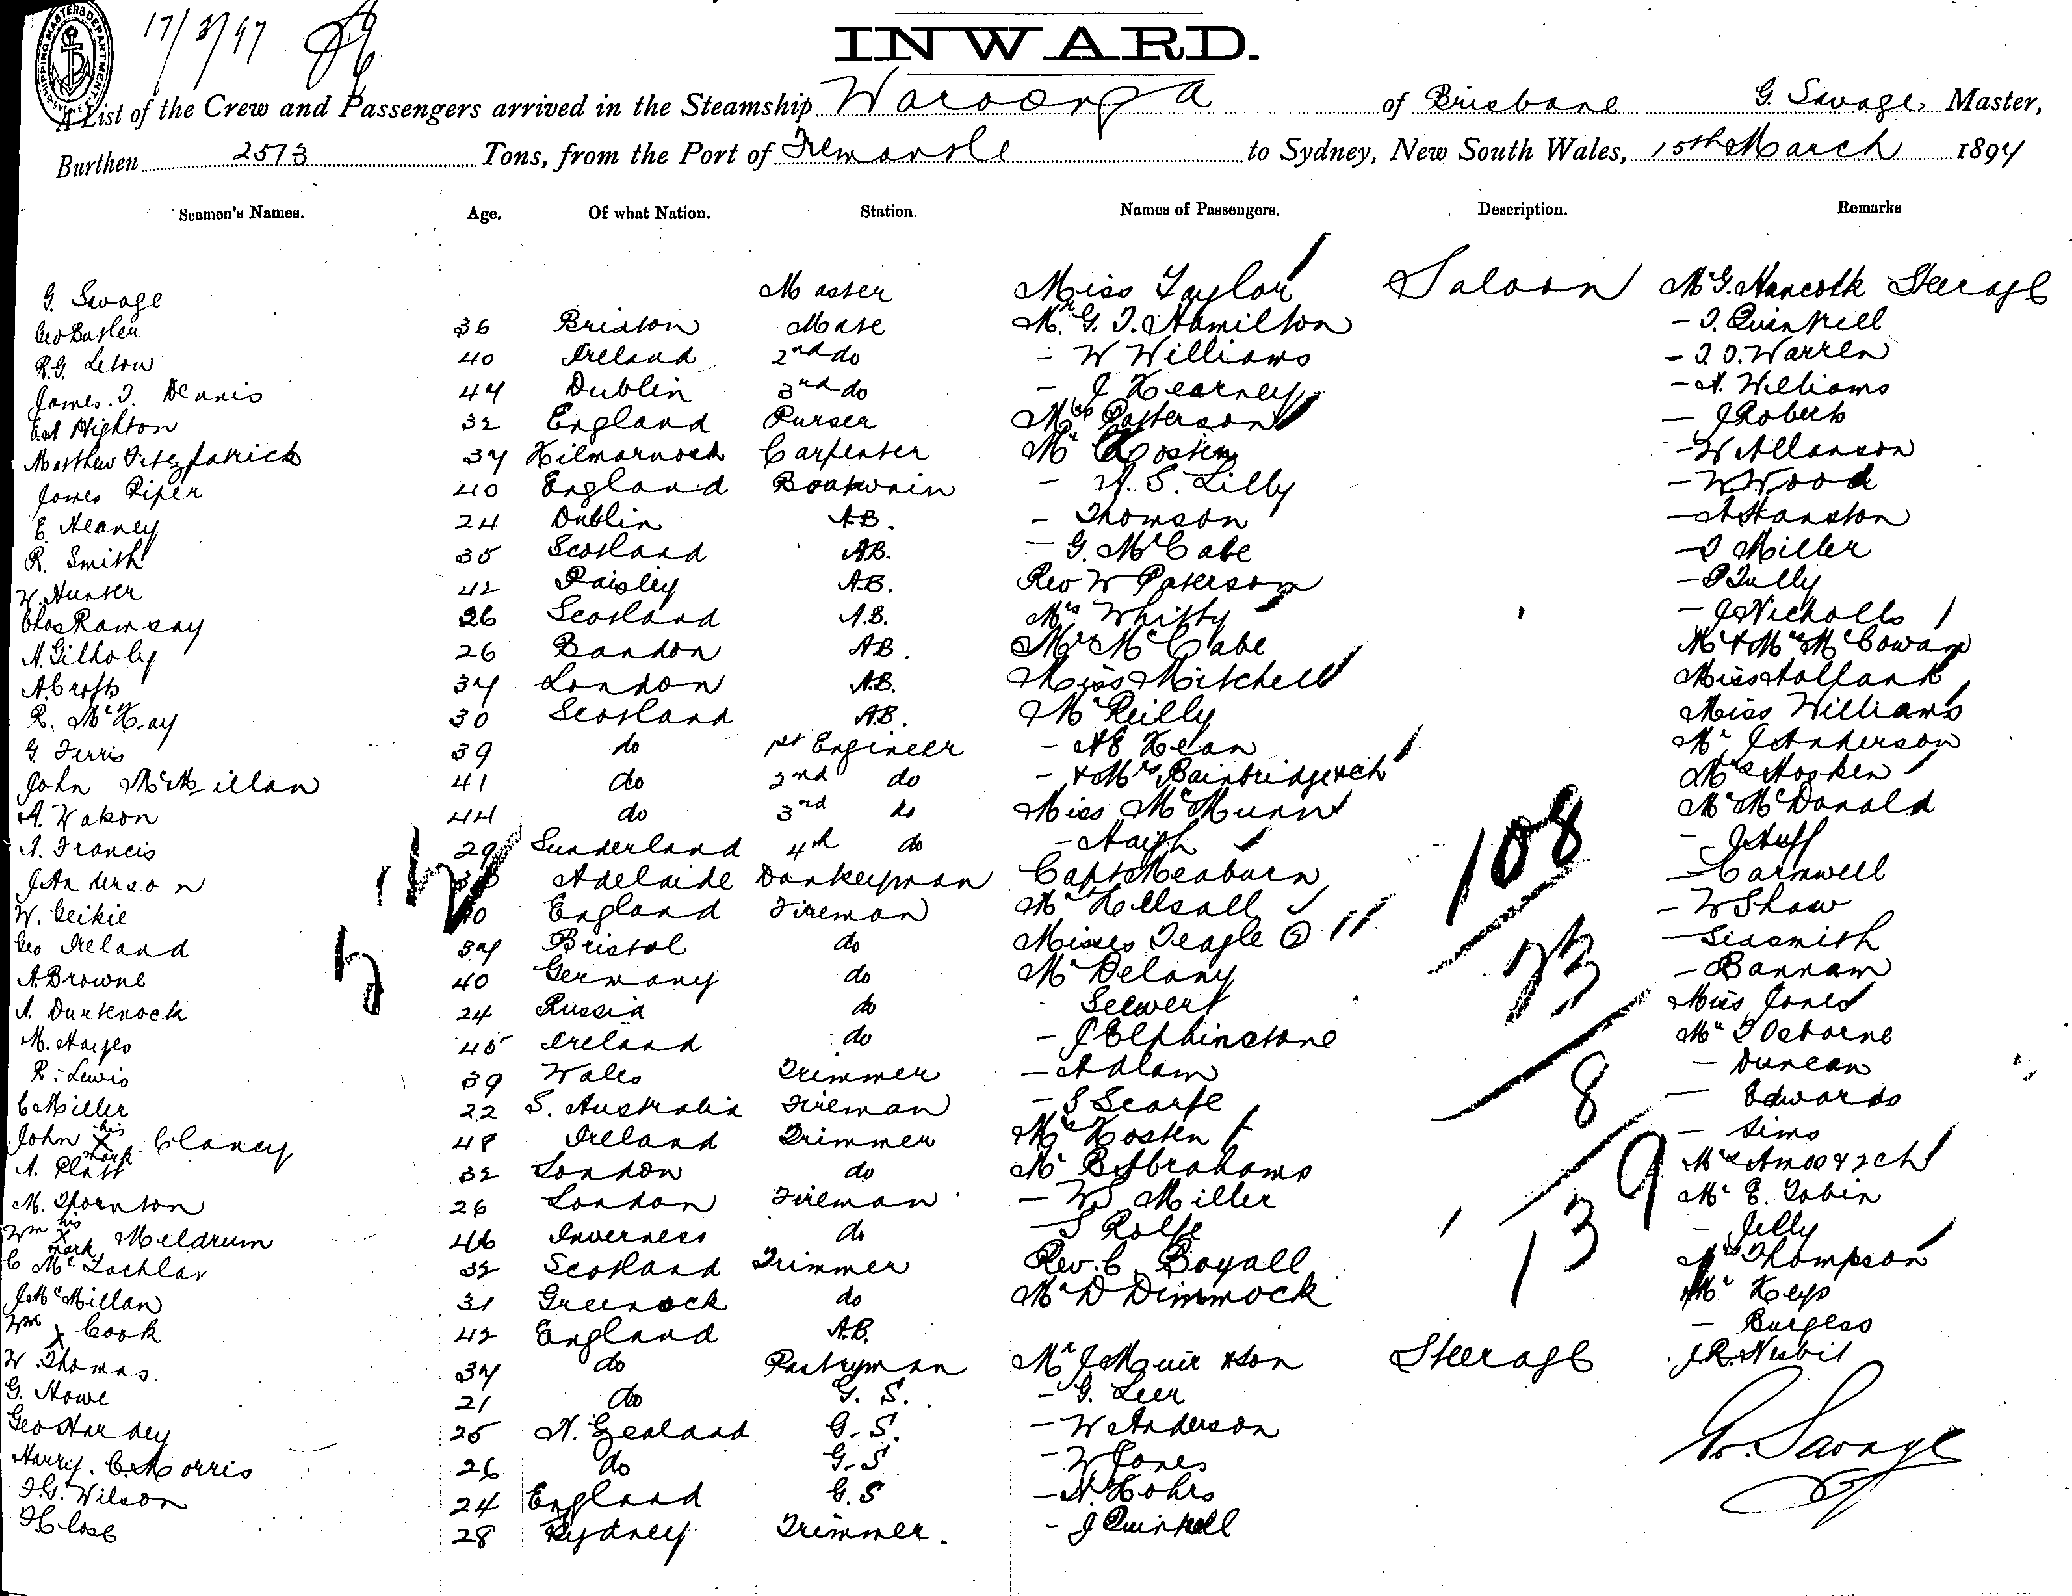 17/3/97
INWARD.
A List of the Crew and Passengers arrived in the Steamship Waroonga of Brisbane G. Savage, Master,
Burthen 2573 Tons, from the Port of Fremantle to Sydney, New South Wales, 15th March 1897
Seamen's Names. Age. Of what Nation. Station. Names of Passengers. Description. Remarks
G. Savage Master Miss Taylor Saloon Mr G. Hancock Steerage
36 Brixton Mate Mr G. T. Hamilton - T. Quinkell
R.G. 40 Ireland 2nd do - W Williams - J. J. Warren
James. T. Dennis 47 Dublin 3rd do - J Kearney - A. Williams
Highton 32 England Purser Mrs Patterson - J Roberts
Matthew Fitzpatrick 37 Kilmarnock Carpenter Mr Hosten - W Allanson
James Piper 40 England Boatswain - A. S. Lilly - W. Wood
E. Heaney 24 Dublin A.B. - Thomson - A Hanston
R. Smith 35 Scotland A.B. - G. McCabe - J Miller
W. Hunter 42 Paisley A.B. Rev W Paterson - P Tully
Chas Ramsay 26 Scotland A.B. Mrs Whitty - J Nicholls
A. Gilholy 26 Bandon A.B. Mr McCabe Mr & Mrs McCowan
A. Crofts 37 London A.B. Miss Mitchell Miss Hollank
R. McKay 30 Scotland A.B. Mr Reilly Miss Williams
G. Ferris 39 do 1st Engineer - A E Kean Mr J Anderson
John McMillan 41 do 2nd do - & Mrs Bainbridge & ch Mrs Hosken
A. Watson 44 do 3rd do Miss McMunn Mr McDonald
A. Francis 29 Sunderland 4th do - Haigh - J Huff
J Anderson Adelaide Donkeyman Capt Meaburn - Carnwell
W. Geikie 40 England Fireman Mr Kellsall - W Shaw
Geo Ireland 37 Bristol do Misses Teagle (2) - Sexsmith
A. Browne 40 Germany do Mr Delany - Bannam
A. Durknock 24 Russia do Seewert Miss Jones
M. Hayes 45 Ireland do - J Elphinstone Mr T Osborne
R. Lewis 39 Wales Trimmer - Adlam - Duncan
C Miller 22 S. Australia Fireman - S Scarfe - Edwards
John his X mark Clancy 48 Ireland Trimmer Mrs Hosten - Sims
A. Platt 32 London do Mr B Abrahams Mrs Amos & 2 ch
M. Thornton 26 London Fireman - W Miller Mr E. Tobin
Wm his X mark Meldrum 46 Inverness do - S Rolfe - Jelly
C McLachlan 32 Scotland Trimmer Rev. C. Boyall Mrs Thompson
J McMillan 31 Greenock do Mr D Dimmock Mr Keys
Wm X Cook 42 England A.B. - Burgess
W. Thomas. 37 do Pantryman Mr J Muir & son Steerage J. R. Nesbit
G. Howe 21 do G. S. - G. Leer
Geo Harvey 25 N. Zealand G. S. - W Anderson
Harry. C. Morris 26 do G. S - W Jones
T. G. Wilson 24 England G. S - A. Kohrs
H Close 28 Sydney Trimmer. - J Quinkell
108
73
8
9
13
G. Savage